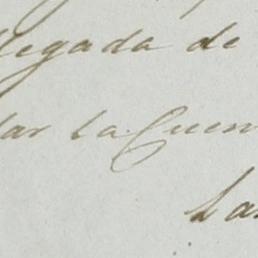 llegada de
dar la Cuen
La